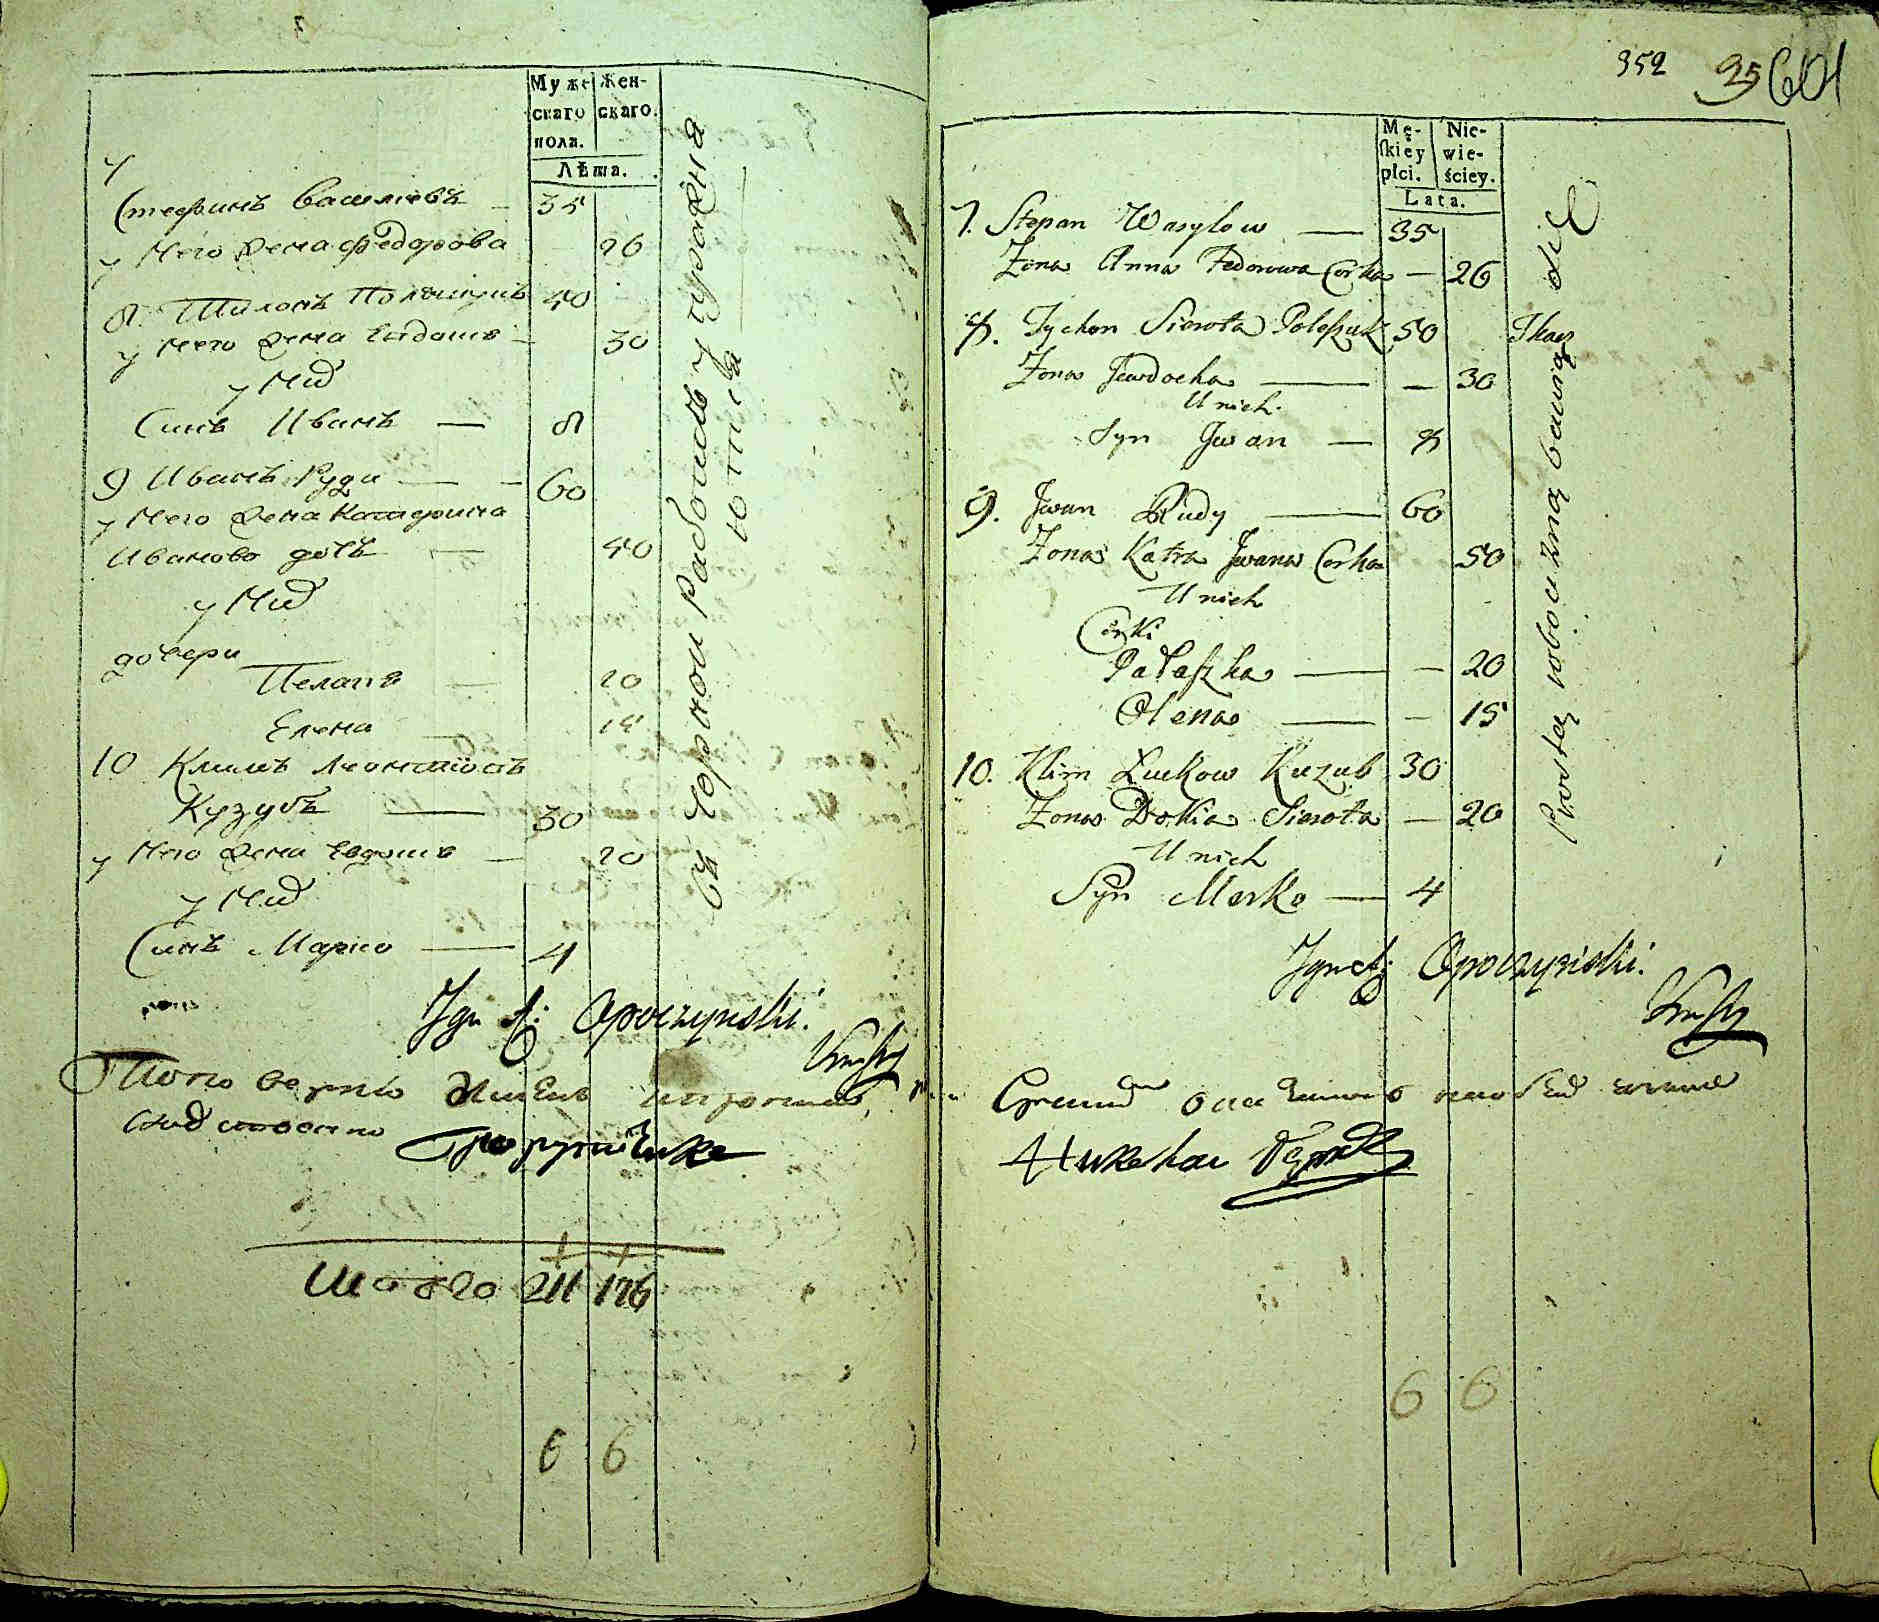 Муже
скаго
пола.
Жен-
скаго.
Лѣта.
7
Стефанъ Василювъ — 35
у Него Жена Федорова 26
8. Тихонъ Полѣшукъ 40
у Него Жена Евдошя — 30
у Них
Синъ Иванъ — 8
9 Иванъ Руди — 60
у Него Жена Катерина
Иванова дочь — 40
у Них
дочери
Пелагя — 20
Елена — 15
10 Климъ
Кузубъ — 30
у Него Жена Евдошя — 20
у Них
Синъ Марко — 4
Opoczynski.
Порутчике
Итого 211 176
6 6
въ чорной работить у чурадна
352 35 601
Mę-
skiey
płci.
Nie-
wie-
ściey.
Lata.
7. Stepan Wasylow — 35
Żona Anna Fedorowa Corka — 26
8. Tychon Sierota Poleszuk 50 Tkacz
Żona Jewdocha — — 30
U nich.
Syn Jwan — 8
9. Jwan Rudy — 60
Żona Katra Jwana Corka 50
U nich
Corki
Pałaszka — — 20
Olena — — 15
10. Klim Łukow Kuzub 30
Żona Dokia Sierota — 20
U nich
Syn Marko — 4
Prostą roboczną bawią się
Opoczynski.
6 6